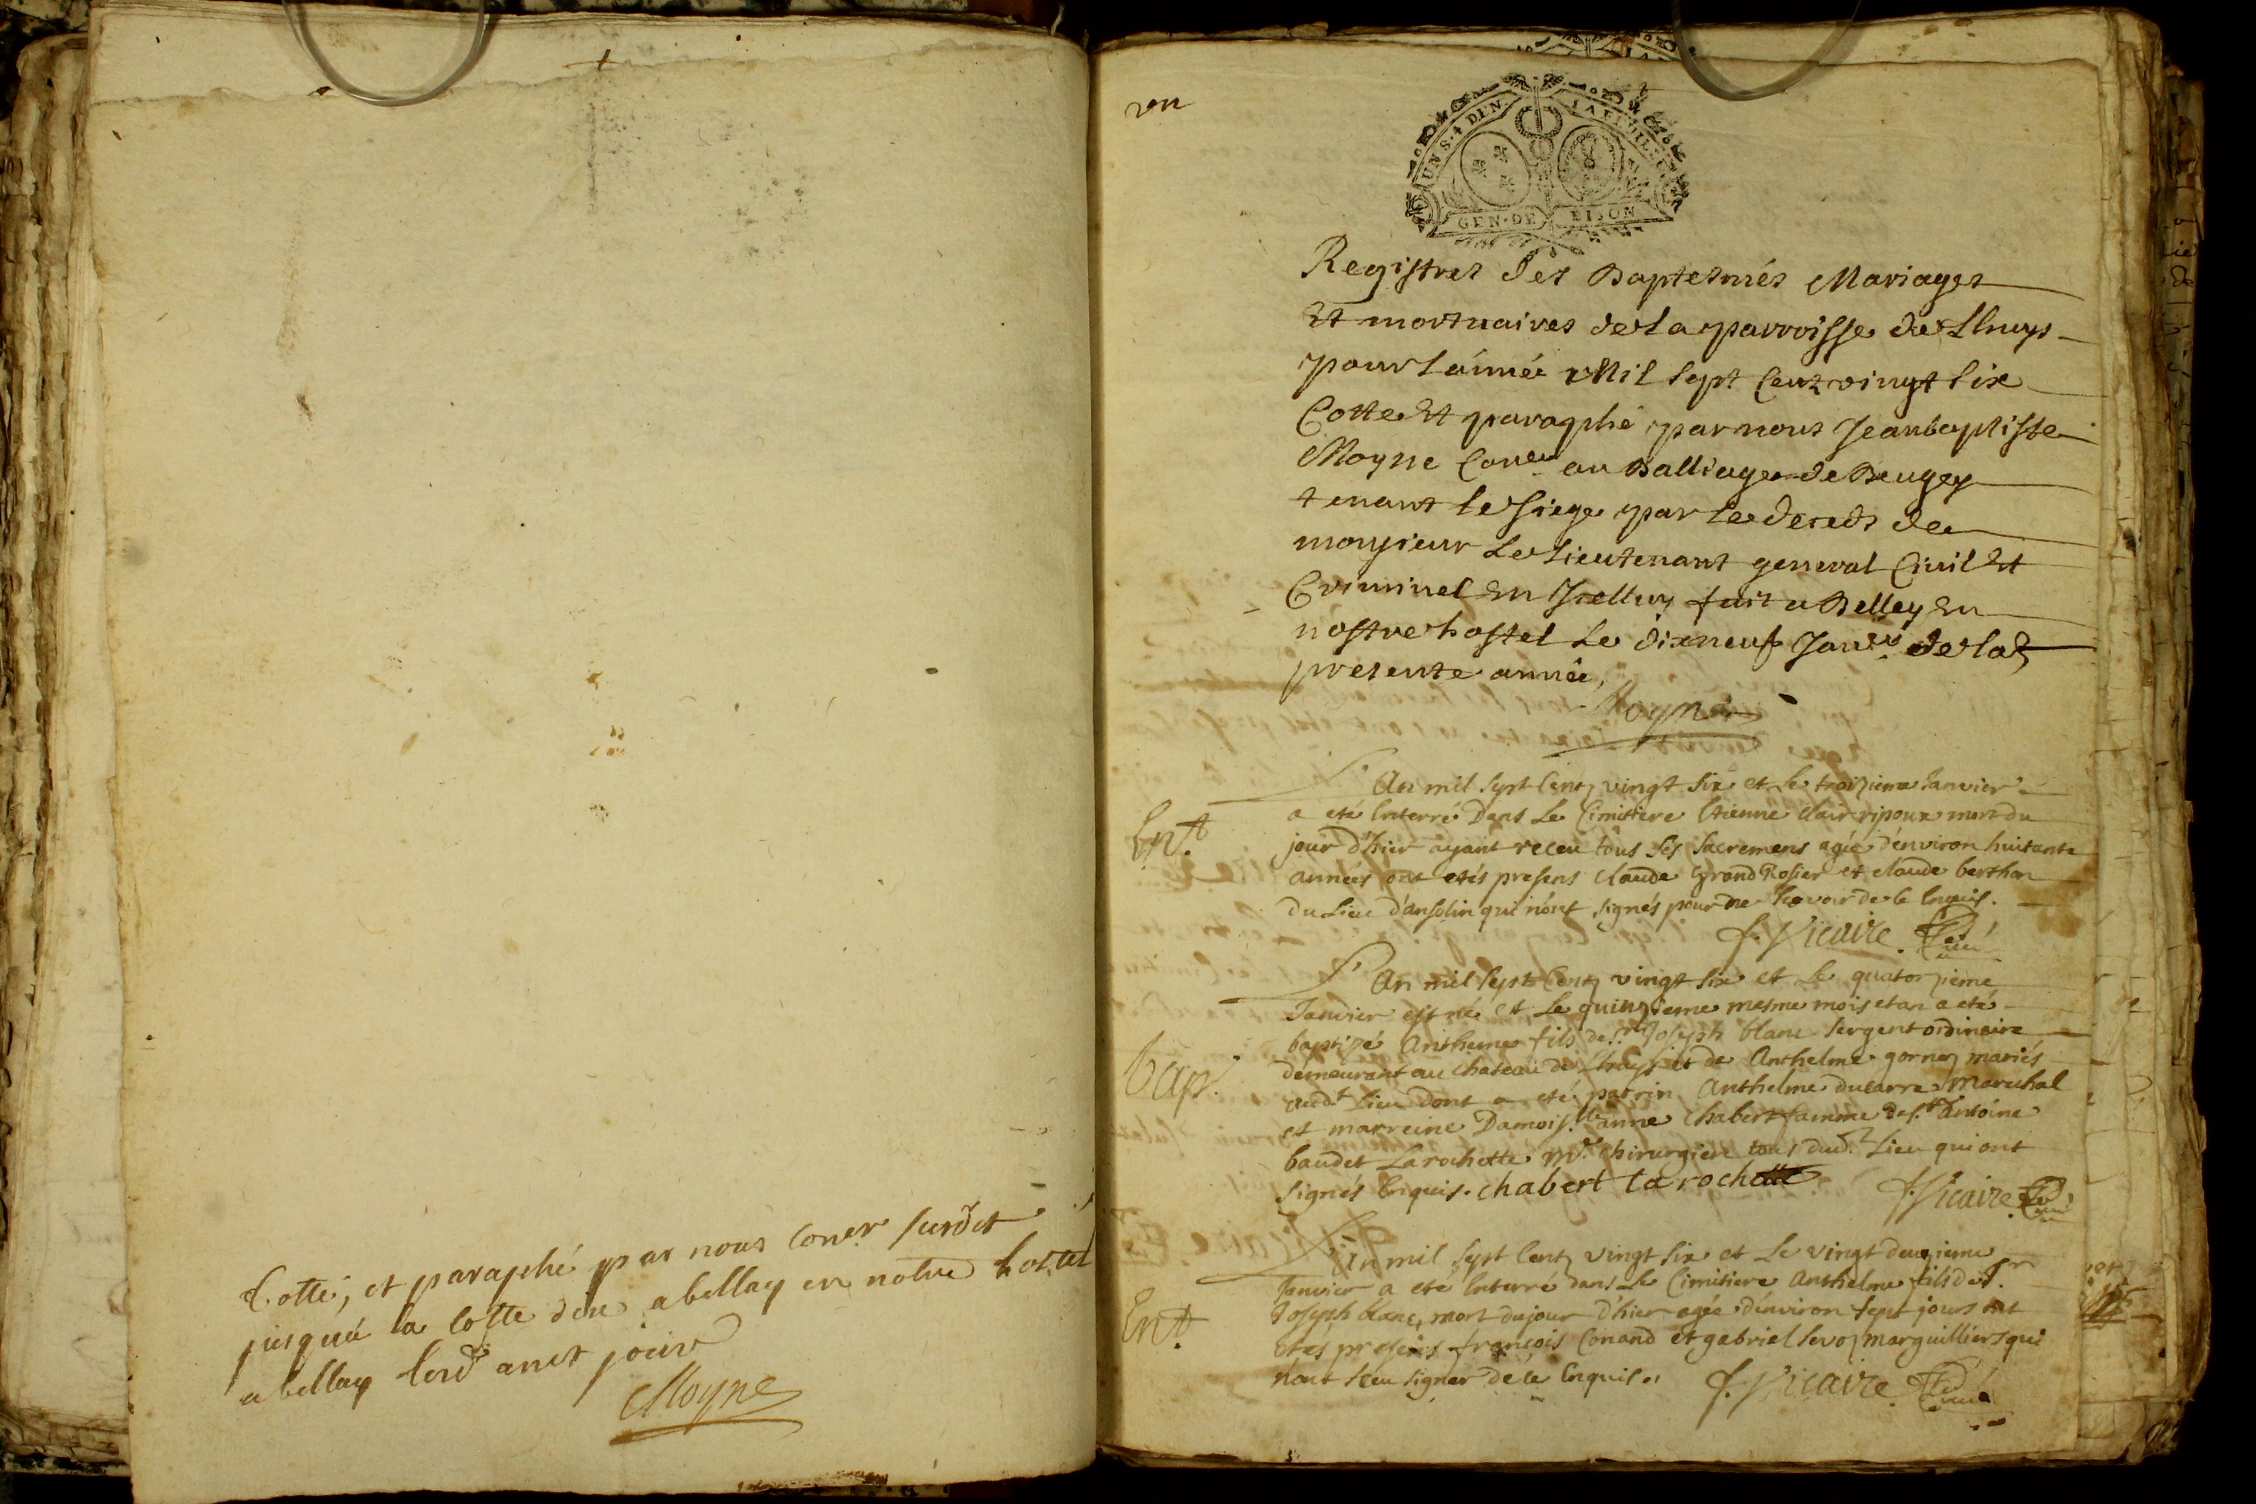 Cotté, et paraphé par nous coner susdit
jusqu'á la cotte dix a bellay en notre hostel
a bellay lesd an et jour
Moyne
vn
UN S. 4 DEN. LA FEUILLE
GEN. DE DIJON
Registres des Baptesmés Mariages
Et mortuaires de la parroisse de Lhuys
pour l'année Mil sept Cent vingt six
Cotte Et paraphé par nous Jean baptiste
Moyne Coner au Balliage de Beugey
tenant le siege par le deceds de
monsieur Le Lieutenant general Civil Et
Criminel En fait a Belley En
nostre hostel Le dix neuf Janer de la
presente année,
Moyne
L'An mil sept Cent vingt six et Le treizieme Janvier
a eté Enterré Dans Le Cimitiere Etienne Clair ripoux mort du
Ent.
jour d'hier ayant receu tous ses sacremens agée d'environ huitante
années ont etés presens Claude Grand Rosier et claude berthon
du Lieu d'ansolin qui n'ont signés pour ne scavoir de ce Enquis.
f. Vicaire Curé
L'An mil sept Cent vingt six et Le quatorzieme
Janvier est né et Le quinzieme mesme mois et an a eté
baptizé Anthelme fils de Sr. Joseph blanc sergent ordinaire
demeurant au chateau de Lhuys et de Anthelme gornez mariés
Bap.
aud. Lieu dont a eté parrin Anthelme ducarre Marechal
et marreine Damois.lle anne Chabert famme de s.r antoine
baudet Larochette M.e chirurgien tous dud. Lieu qui ont
signés Enquis. chabert La rochette f. Vicaire Curé
L'An mil sept Cent vingt six et Le vingt deuxieme
Janvier a eté Enterré dans Le Cimitiere Anthelme fils de S.r
Joseph blanc, mort du jour d'hier agée d'environ sept jours ont
Ent.
etés presens francois Conand et gabriel Sevoz marguilliers qui
n'ont sceu signer de ce Enquis. f. Vicaire Curé